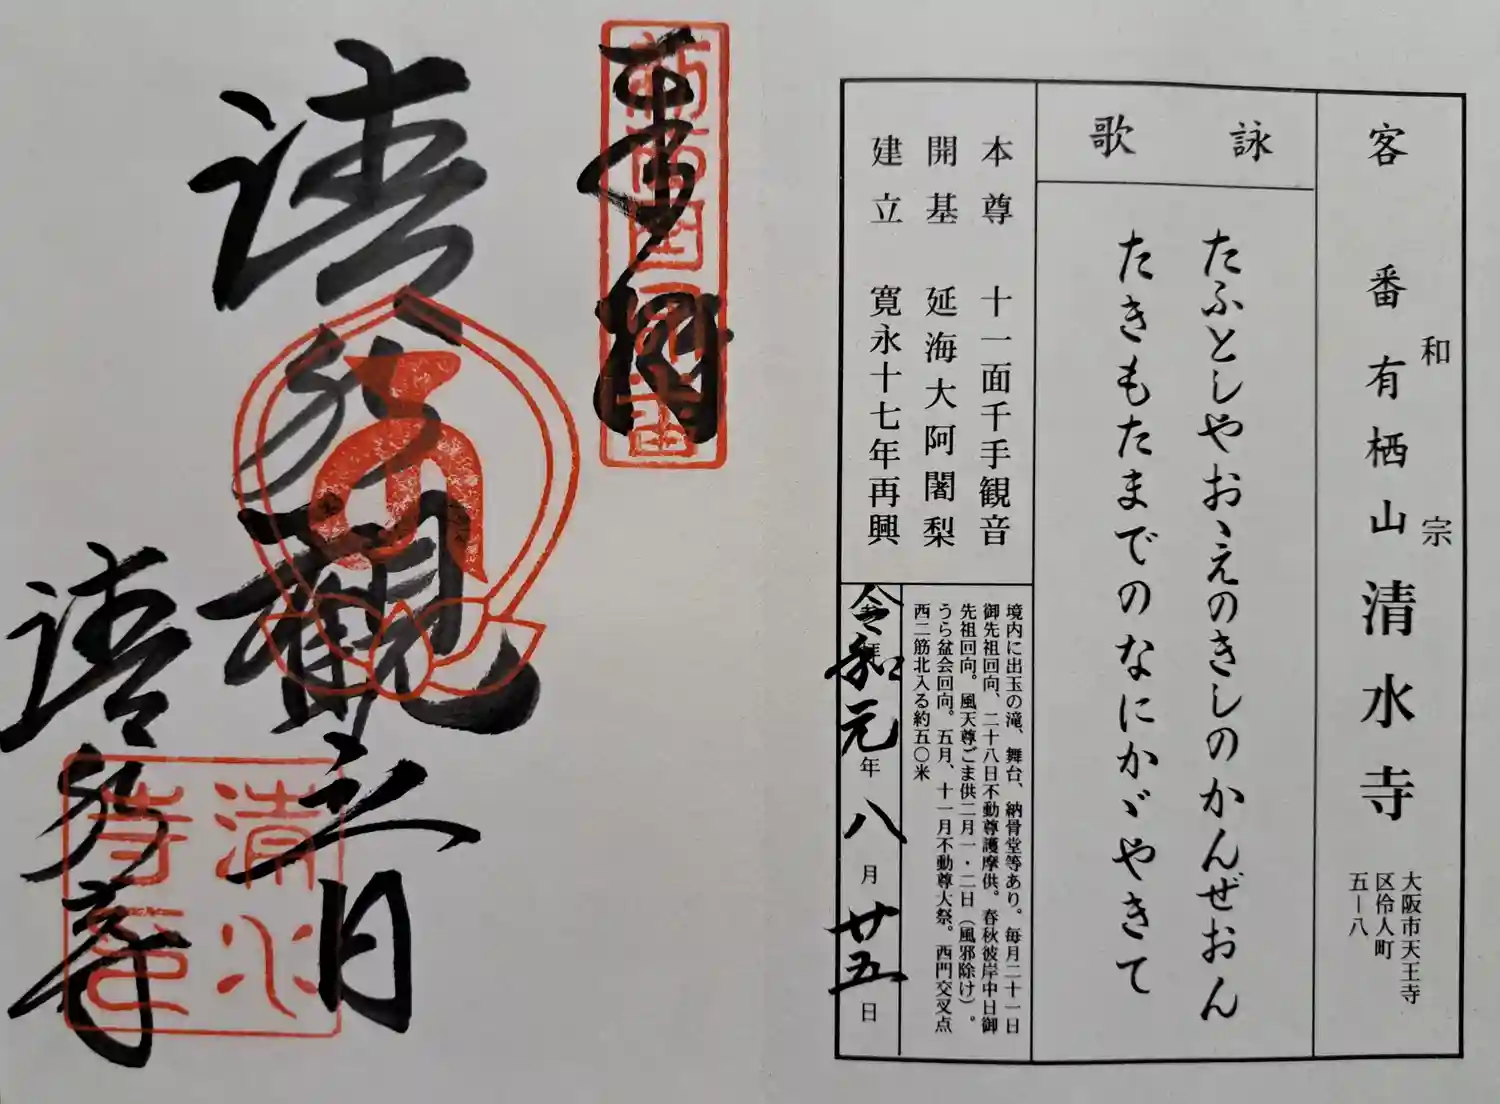 和宗
客番 有栖山 清水寺
大阪市天王寺
区伶人町
五ー八
詠歌
たふとしやおゝえのきしのかんぜおん
たきもたまでのなにかゞやきて
本尊 十一面千手観音
開基 延海大阿闍梨
建立 寛永十七年再興
境内に出玉の滝、舞台、納骨堂等あり。毎月二十一日
御先祖回向、二十八日不動尊護摩供。春秋彼岸中日御
先祖回向。風天尊ごま供二月一・二日（風邪除け）。
うら盆会回向。五月、十一月不動尊大祭。西門交叉点
西二筋北入る約五〇米
令和元年八月廿五日
奉拝
清水寺
清水寺印